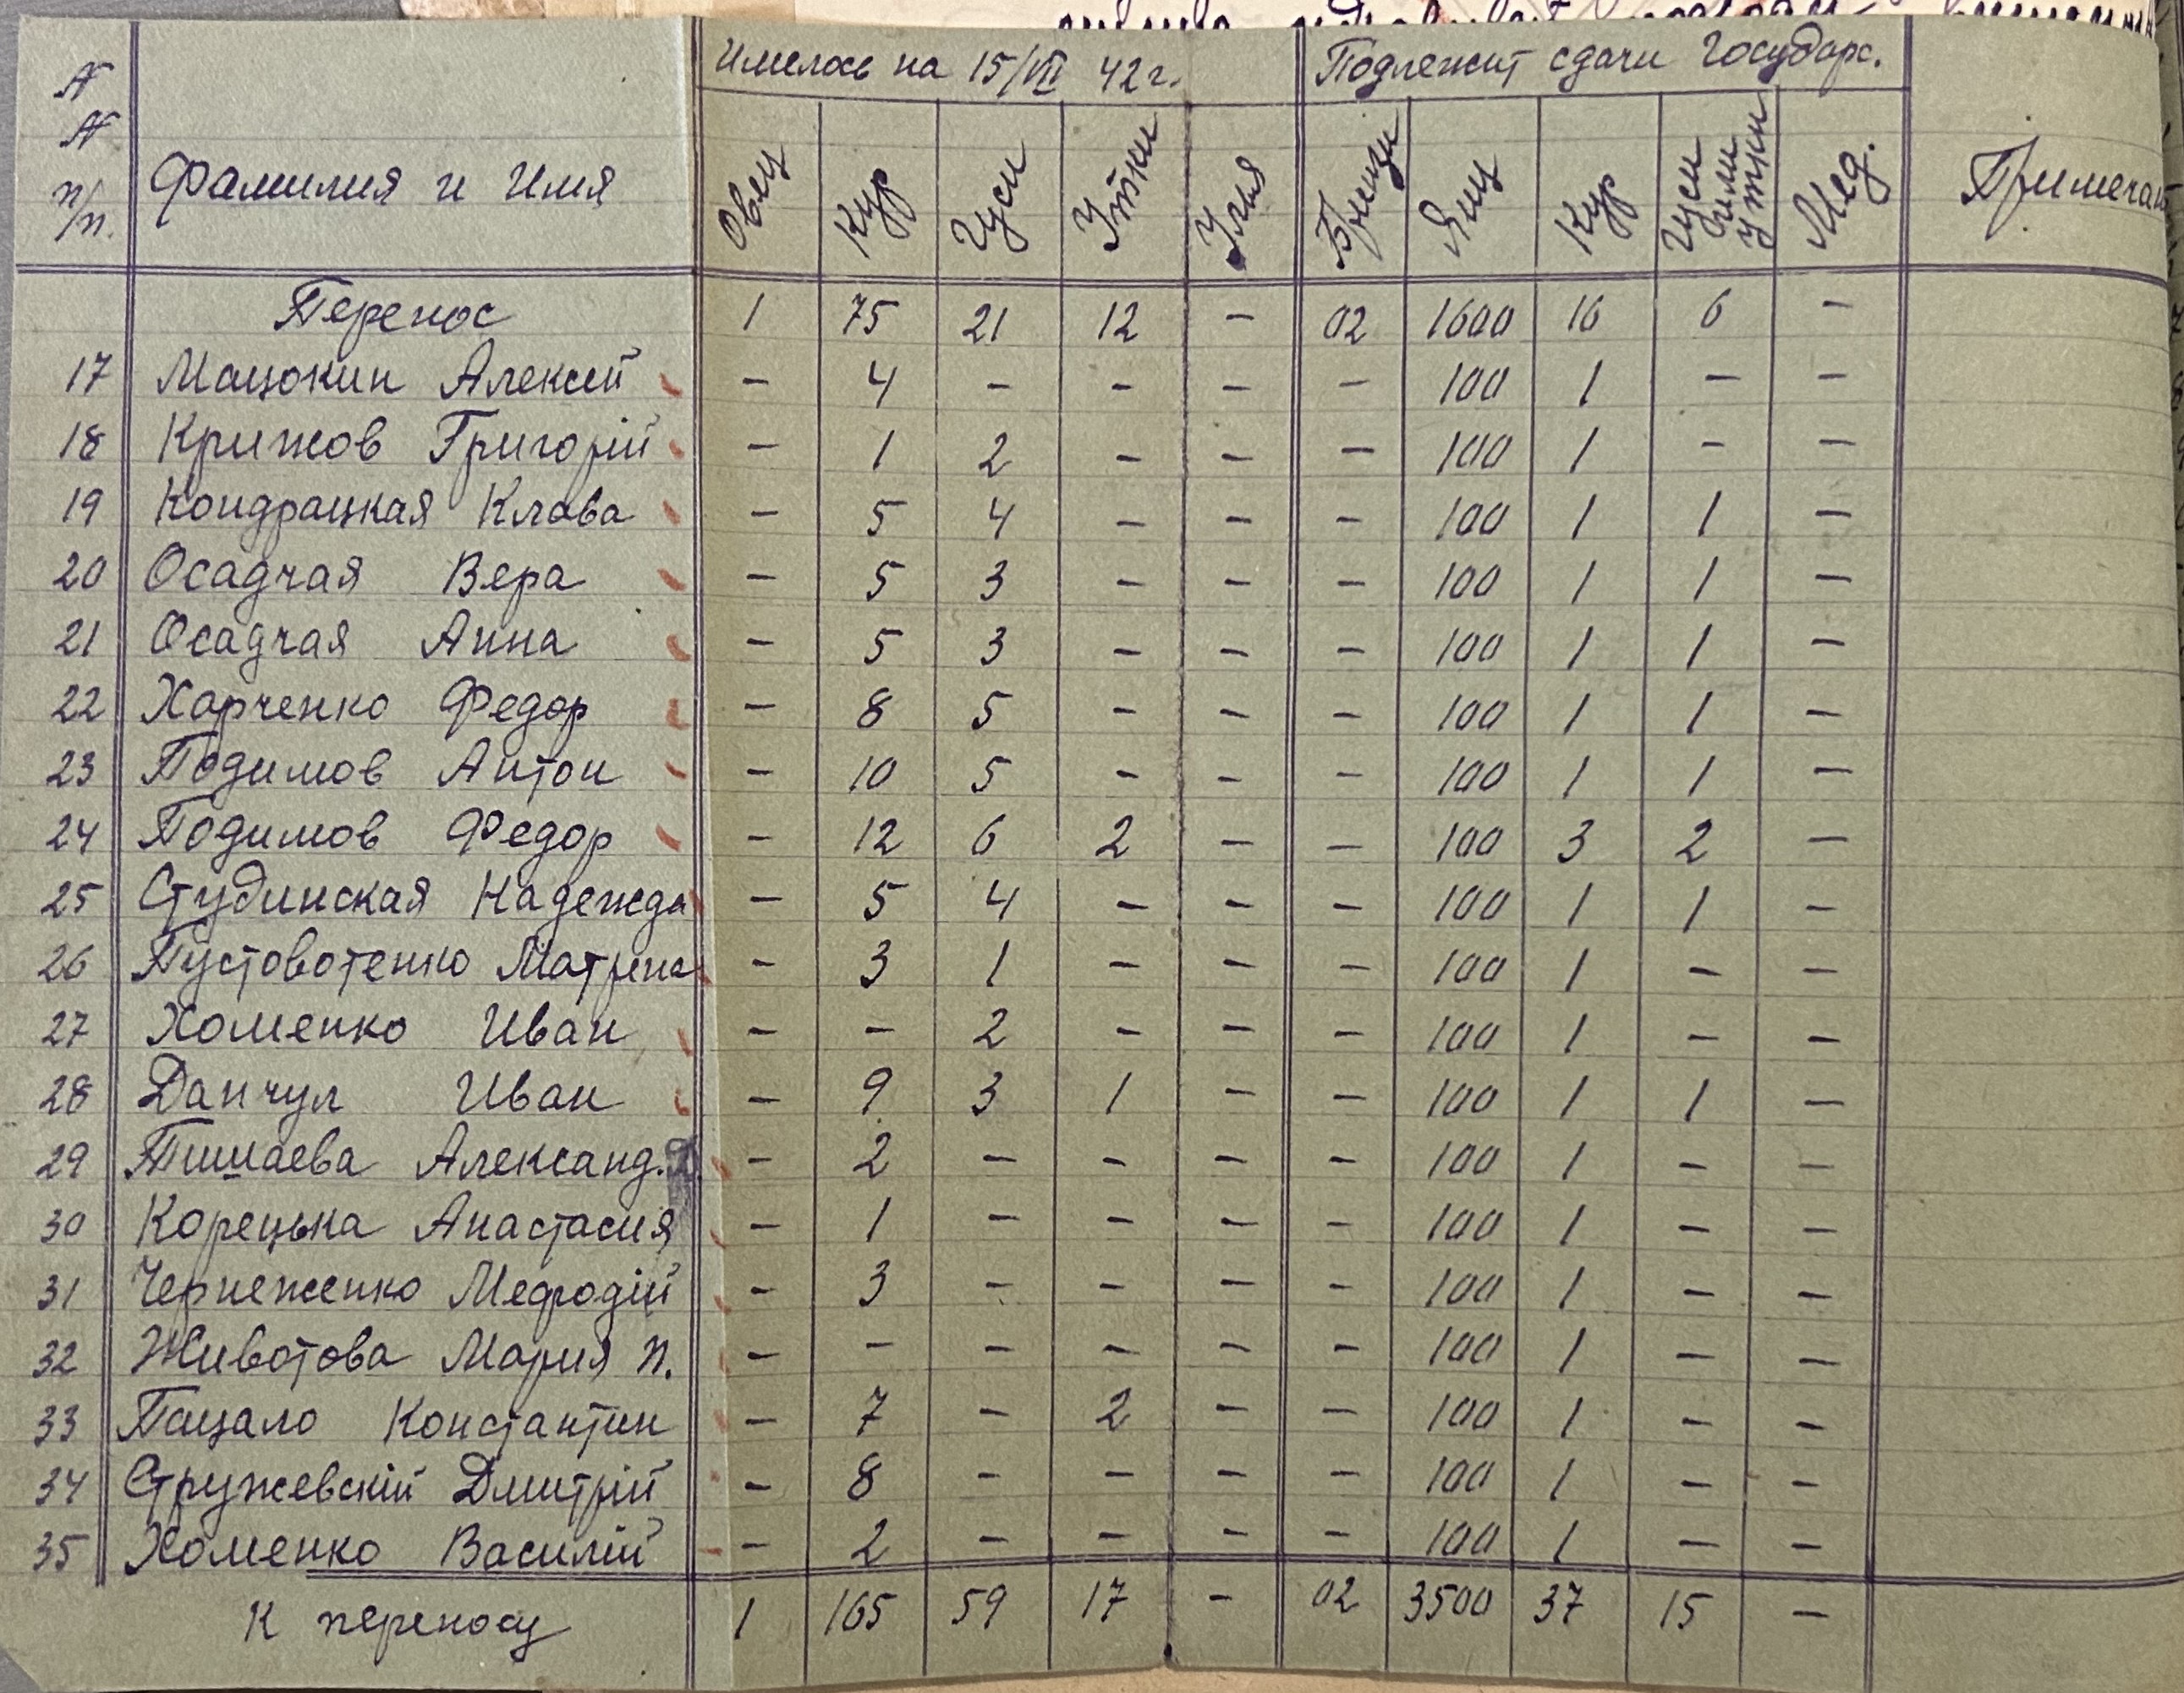 Имелось на 15/VII 42 г. Подлежит сдачи Государс.
N N п/п. Фамилия и Имя Овец Кур Гуси Утки Улия Брынзи Яиц Кур Гуси или утки Мед. Примечан
Перенос 1 75 21 12 – 02 1600 16 6 –
17 Мацюкин Алексей – 4 – – – – 100 1 – –
18 Крижов Григорій – 1 2 – – – 100 1 – –
19 Кондрацкая Клава – 5 4 – – – 100 1 1 –
20 Осадчая Вера – 5 3 – – – 100 1 1 –
21 Осадчая Анна – 5 3 – – – 100 1 1 –
22 Харченко Федор – 8 5 – – – 100 1 1 –
23 Подимов Антон – 10 5 – – – 100 1 1 –
24 Подимов Федор – 12 6 2 – – 100 3 2 –
25 Студинская Надежда – 5 4 – – – 100 1 1 –
26 Пустовотенко Матрена – 3 1 – – – 100 1 – –
27 Хоменко Иван – – 2 – – – 100 1 – –
28 Данчул Иван – 9 3 1 – – 100 1 1 –
29 Тишаева Александ. – 2 – – – – 100 1 – –
30 Корецька Анастасия – 1 – – – – 100 1 – –
31 Чернеженко Мефодій – 3 – – – – 100 1 – –
32 Животова Мария П. – – – – – – 100 1 – –
33 Пацало Константин – 7 – 2 – – 100 1 – –
34 Стружевскій Дмитрій – 8 – – – – 100 1 – –
35 Хоменко Василій – 2 – – – – 100 1 – –
К переносу 1 165 59 17 – 02 3500 37 15 –